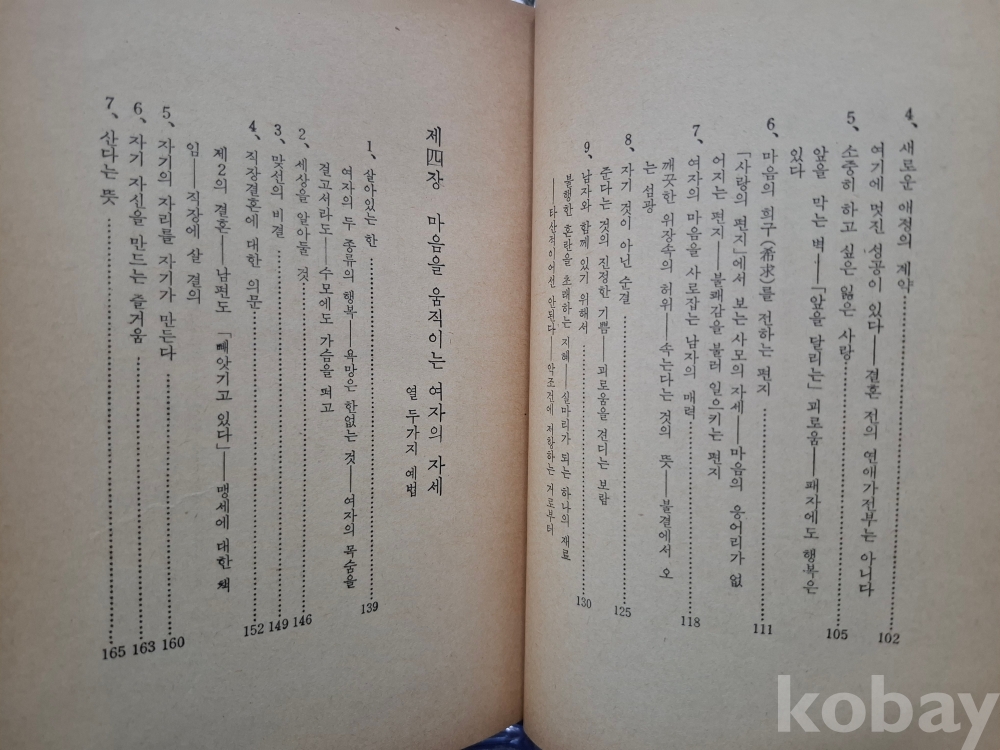 4、새로운 애정의 제약………102
여기에 멋진 성공이 있다——결혼 전의 연애가전부는 아니다
5、소중히 하고 싶은 잃은 사랑………105
앞을 막는 벽·——「앞을 달리는」괴로움——패자에도 행복은
있다
6、마음의 희구(希求)를 전하는 편지………111
「사랑의 편지」에서 보는 사모의 자세——마음의 응어리가 없
어지는 편지——불쾌감을 불러 일으키는 편지
7、여자의 마음을 사로잡는 남자의 매력………118
깨끗한 위장속의 허위——속는다는 것의 뜻——불결에서 오
는 섬광
8、자기 것이 아닌 순결………125
준다는 것의 진정한 기쁨——괴로움을 견디는 보람
9、남자와 함께 있기 위해서………130
불행한 혼란을 초래하는 지혜——실마리가 되는 하나의 재료
——타산적이어선 안된다——악조건에 저항하는 거로부터
제四장 마음을 움직이는 여자의 자세
열 두가지 예법
1、살아있는 한………139
여자의 두 종류의 행복——욕망은 한없는 것——여자의 목숨을
걸고서라도——수모에도 가슴을 펴고
2、세상을 알아둘 것………146
3、맞선의 비결………149
4、직장결혼에 대한 의문………152
제2의 결혼——남편도「빼앗기고 있다」——맹세에 대한 책
임——직장에 살 결의
5、자기의 자리를 자기가 만든다………160
6、자기 자신을 만드는 즐거움………163
7、산다는 뜻………165
kobay